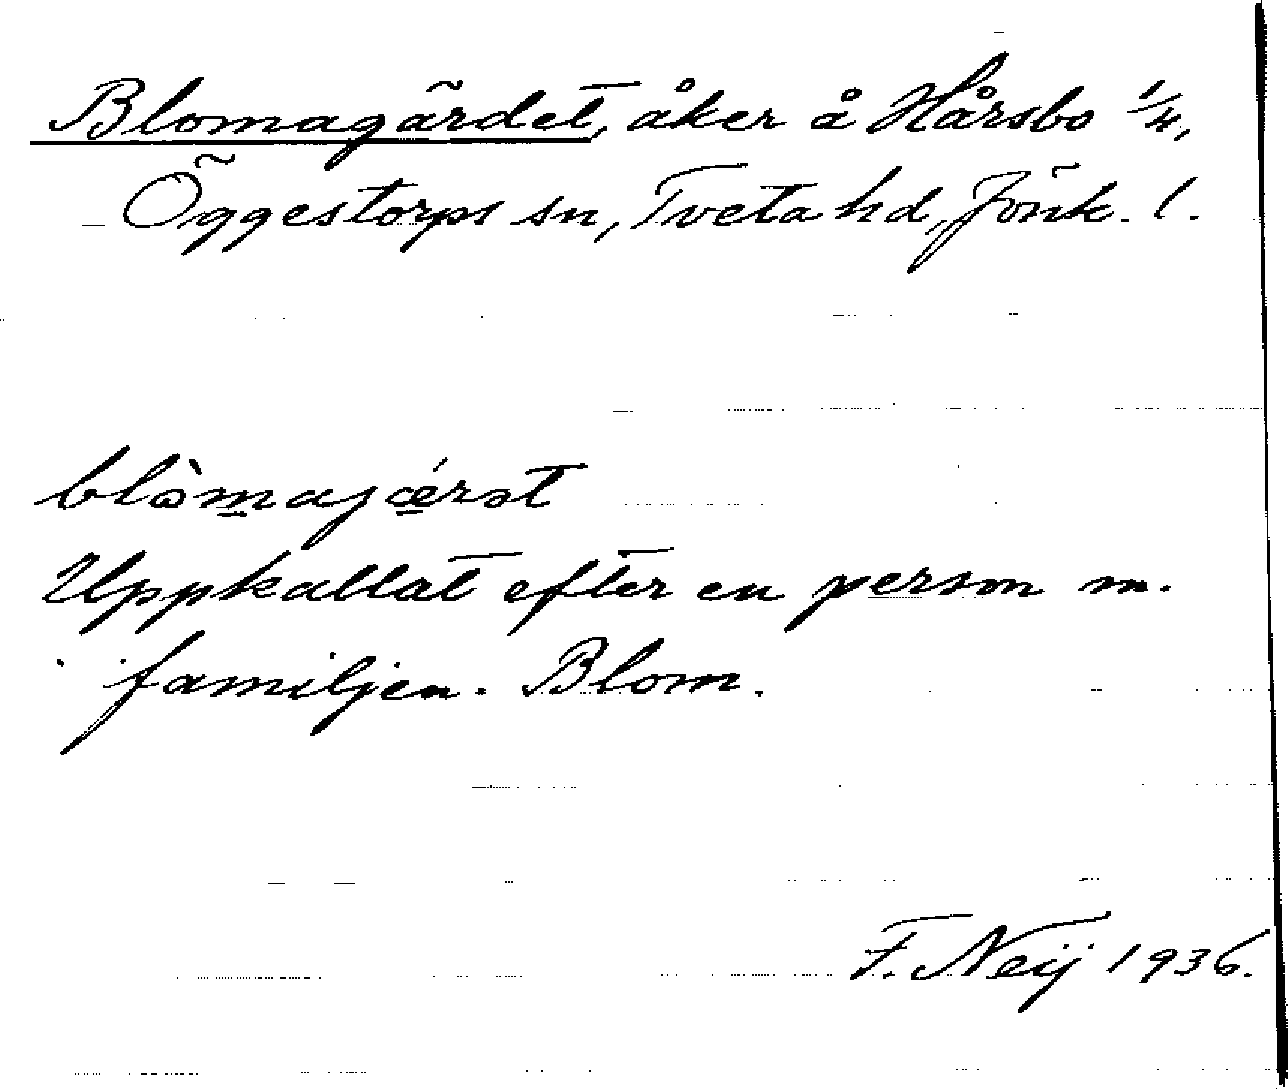 Blomagärdet, åker å Hårsbo 1/4,
Öggestorps sn, Tveta hd, Jönk. l.
blòmajǽrət
Uppkallat efter en person m.
familjen. Blom.
F. Neij 1936.